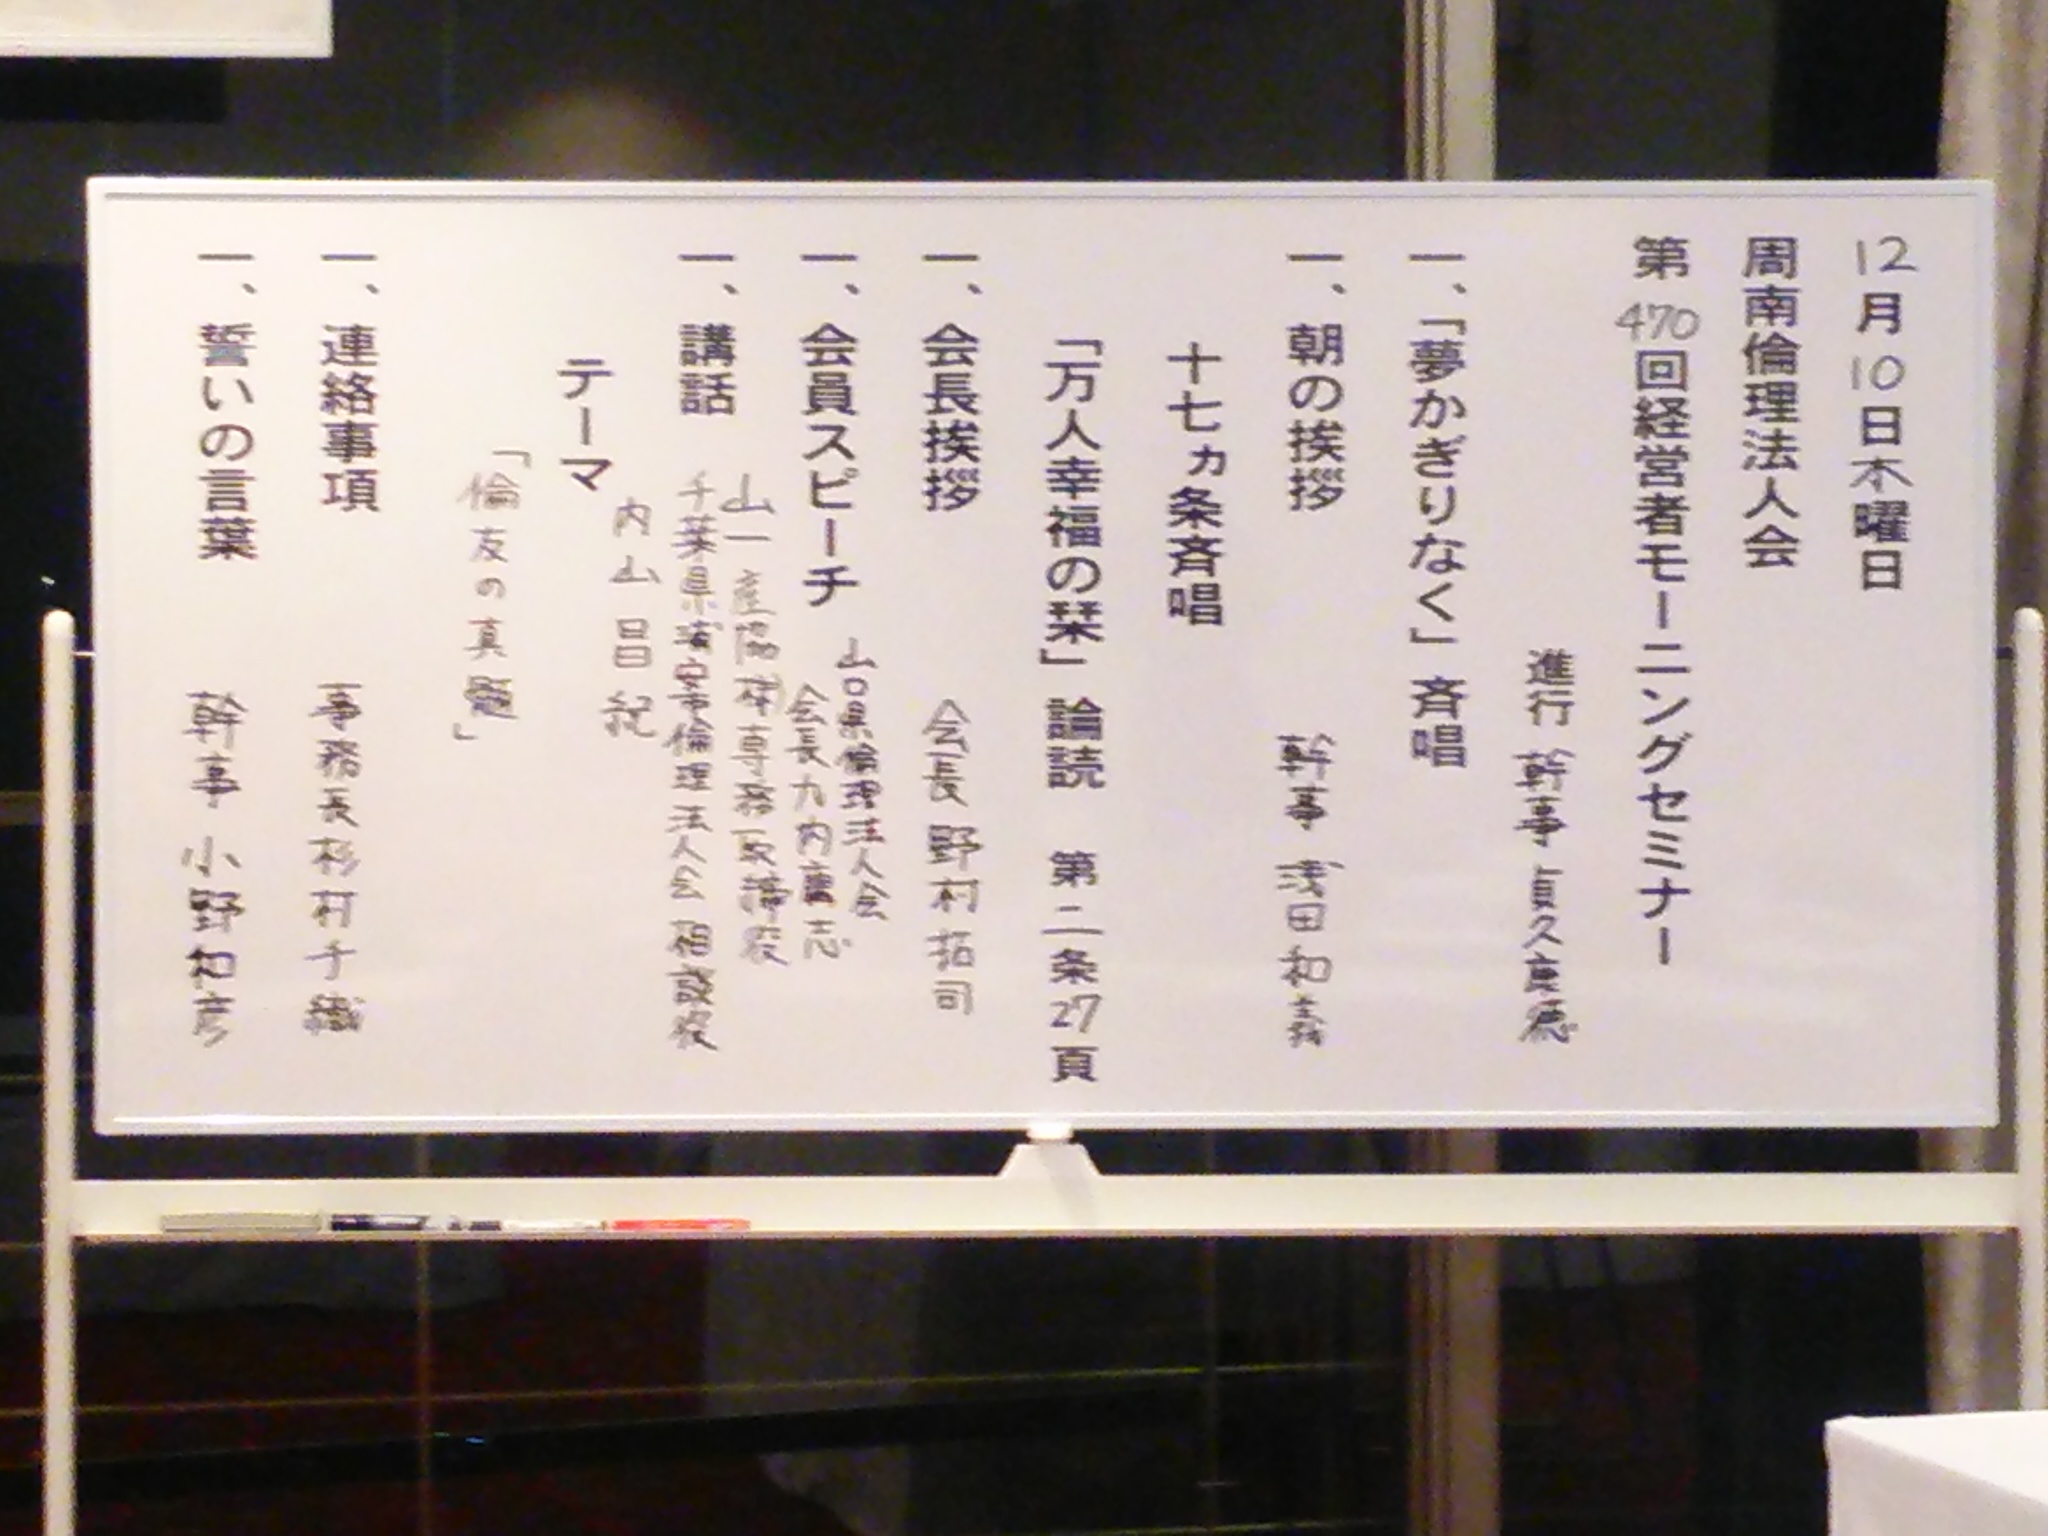 12月10日木曜日
周南倫理法人会
第470回経営者モーニングセミナー
進行 幹事 貞久真徳
一、「夢かぎりなく」斉唱
一、朝の挨拶 幹事 浅田和義
十七ヵ条斉唱
「万人幸福の栞」論読 第二条27頁
一、会長挨拶 会長 野村拓司
一、会員スピーチ 山口県倫理法人会
会長 九内 志
一、講話 山一産協 専務取締役
千葉県浦安市倫理法人会 相談役
内山昌紀
テーマ
「倫友の真髄」
一、連絡事項 事務長 杉村千織
一、誓いの言葉 幹事 小野和彦